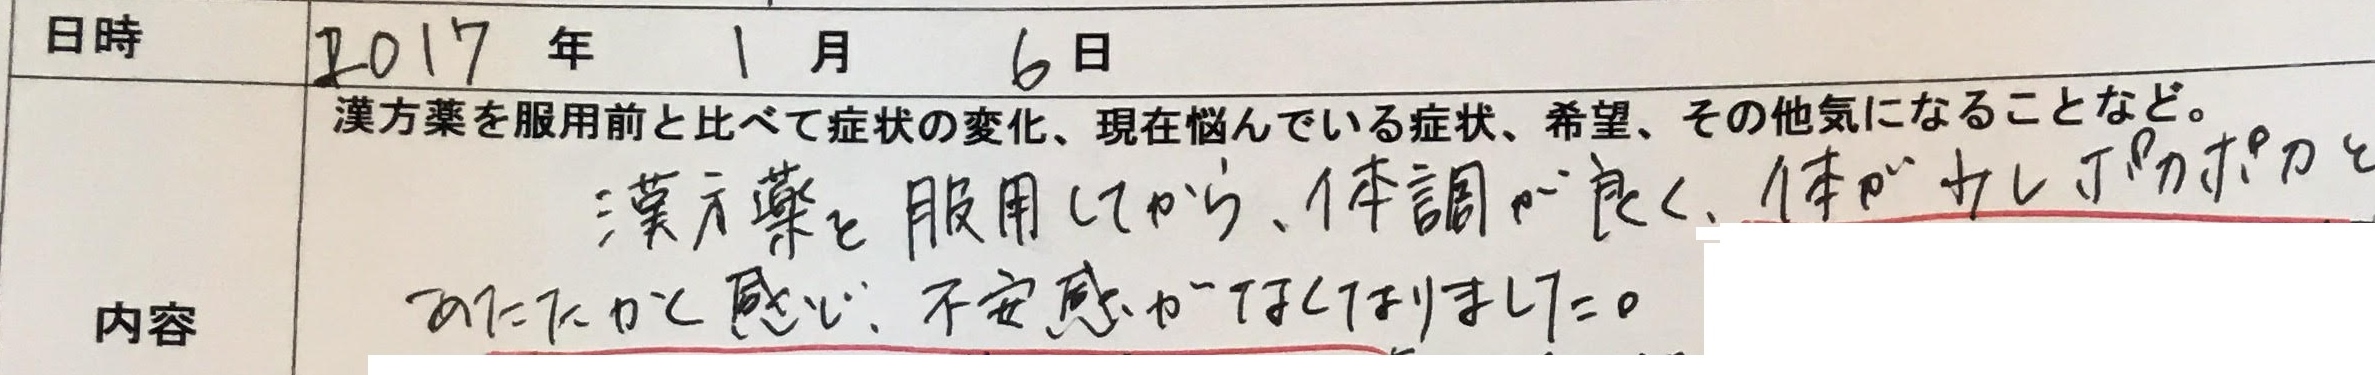 日時 2017 年 1 月 6 日
漢方薬を服用前と比べて症状の変化、現在悩んでいる症状、希望、その他気になることなど。
漢方薬を服用してから、体調が良く、体が少しポカポカと
あたたかく感じ、不安感がなくなりました。
内容